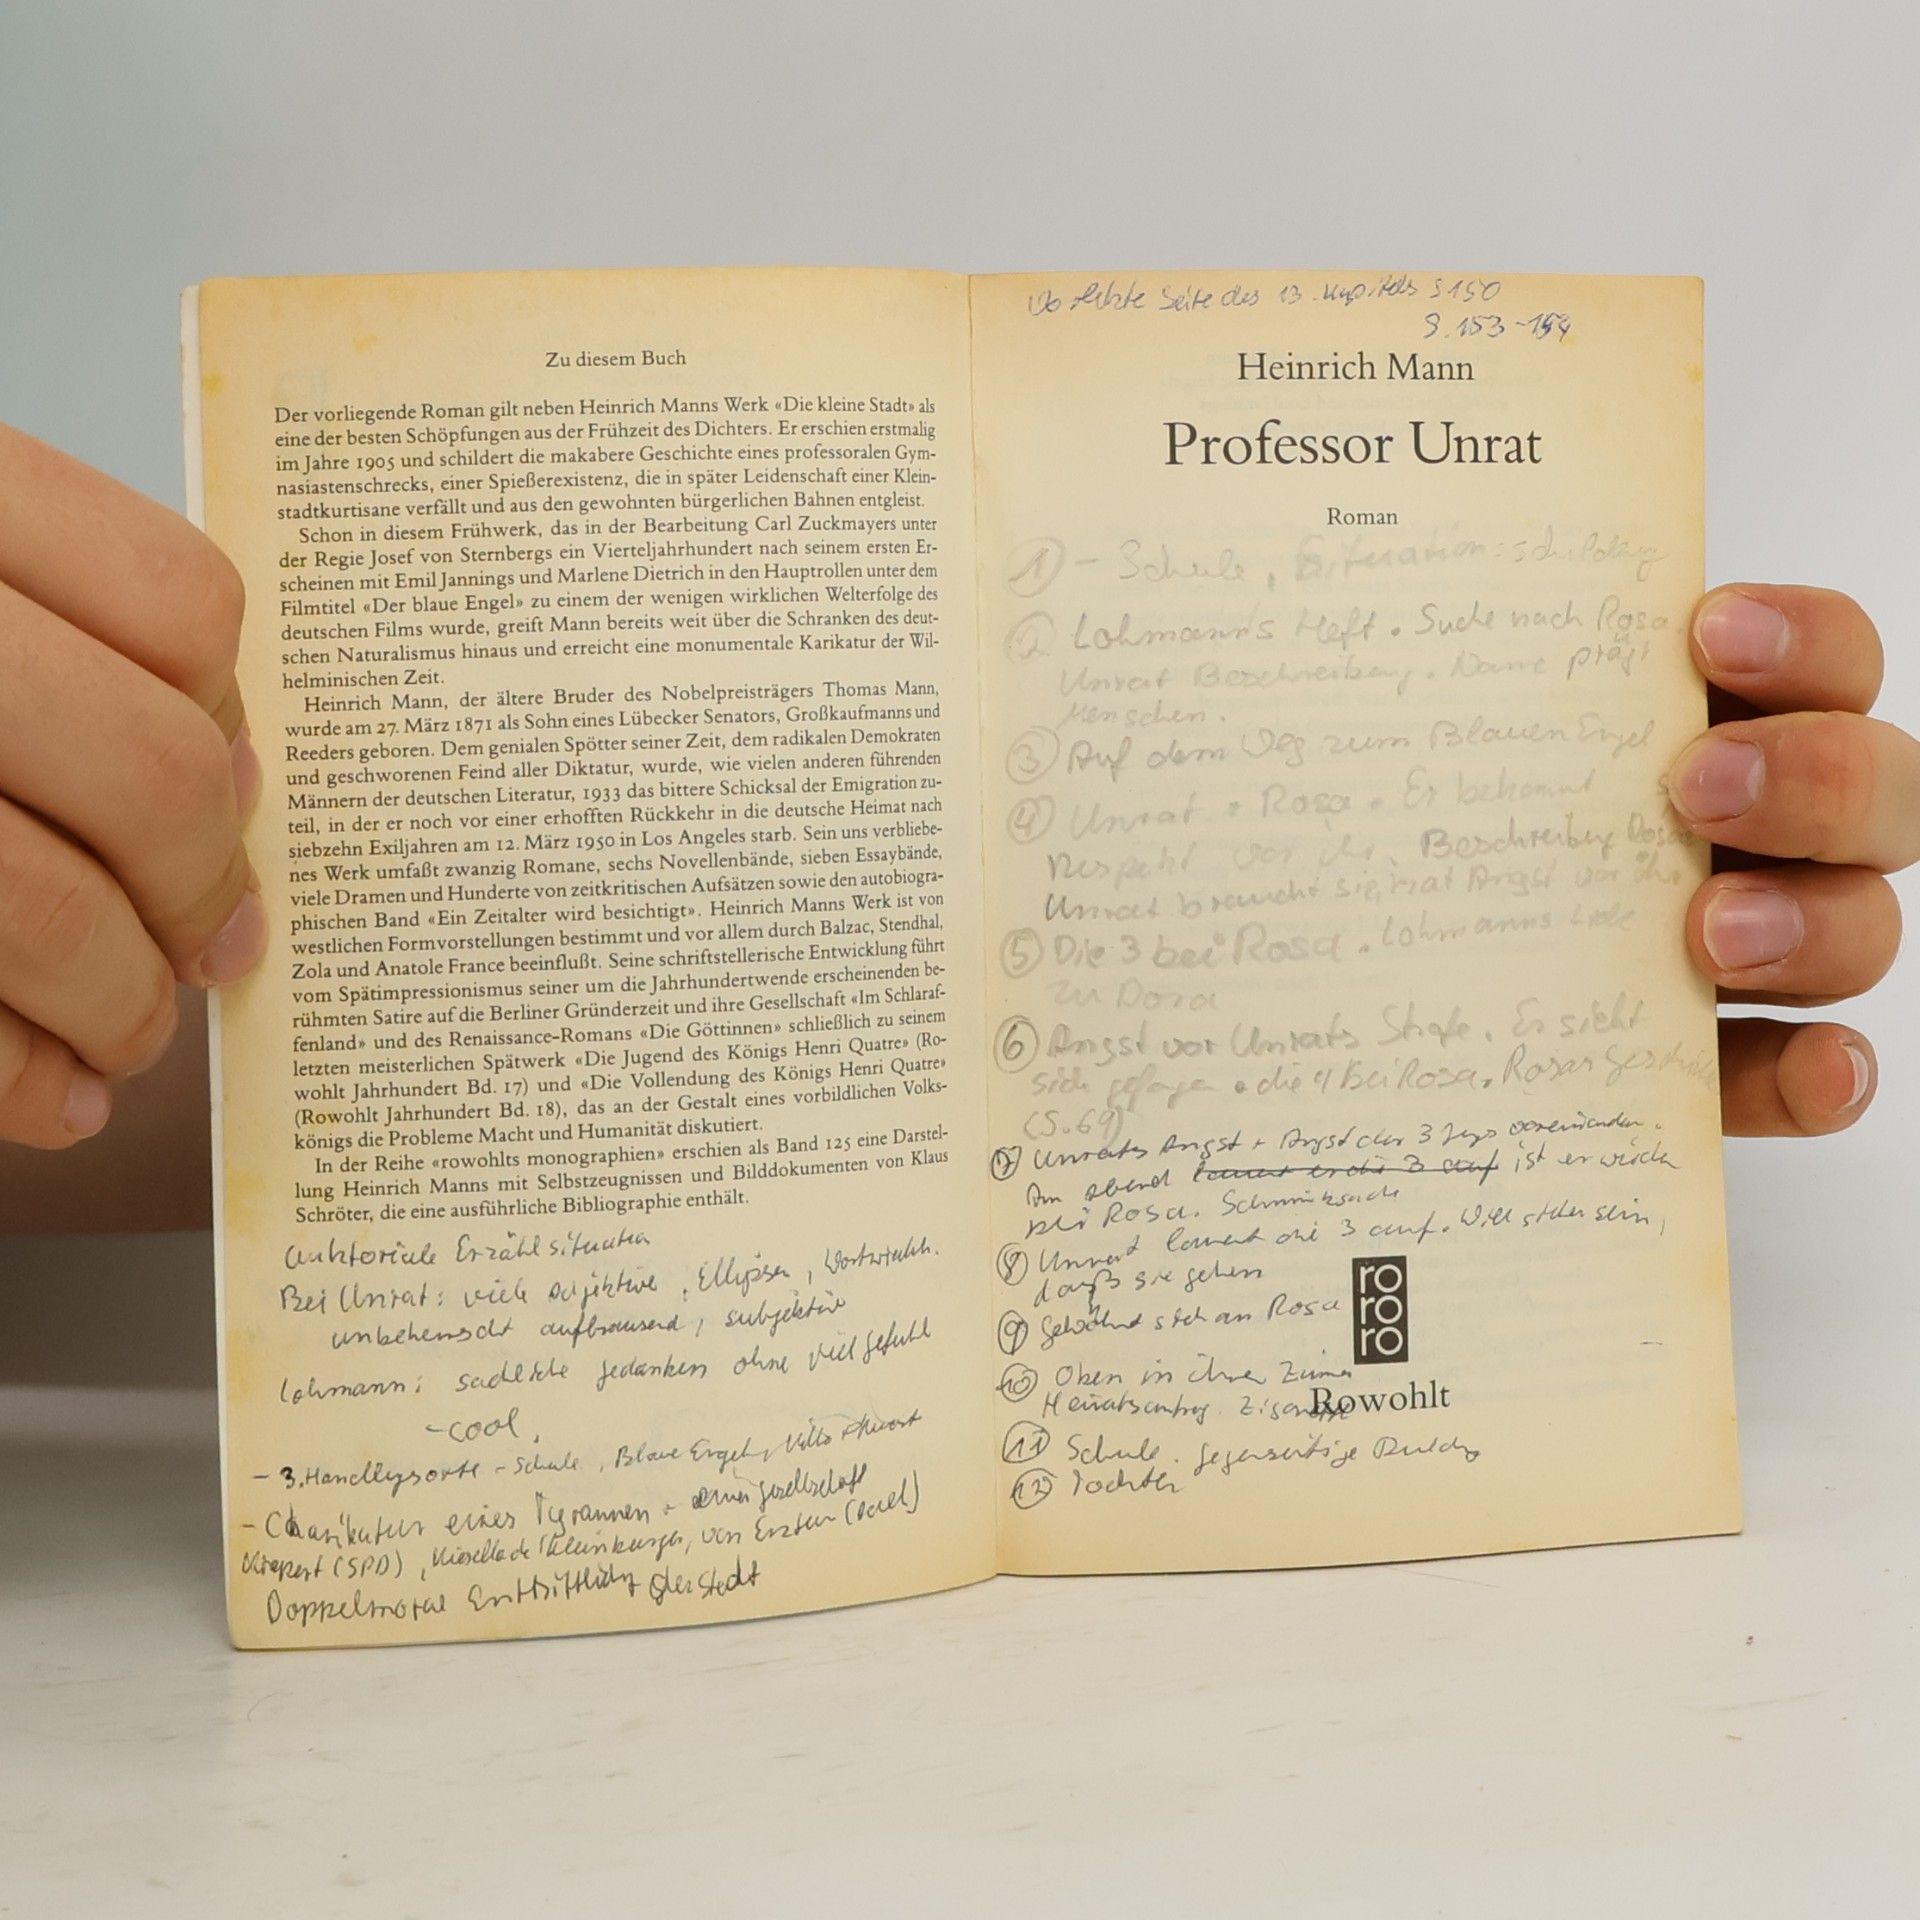 Zu diesem Buch
Der vorliegende Roman gilt neben Heinrich Manns Werk «Die kleine Stadt» als
eine der besten Schöpfungen aus der Frühzeit des Dichters. Er erschien erstmalig
im Jahre 1905 und schildert die makabere Geschichte eines professoralen Gym-
nasiastenschrecks, einer Spießerexistenz, die in später Leidenschaft einer Klein-
stadtkurtisane verfällt und aus den gewohnten bürgerlichen Bahnen entgleist.
Schon in diesem Frühwerk, das in der Bearbeitung Carl Zuckmayers unter
der Regie Josef von Sternbergs ein Vierteljahrhundert nach seinem ersten Er-
scheinen mit Emil Jannings und Marlene Dietrich in den Hauptrollen unter dem
Filmtitel «Der blaue Engel» zu einem der wenigen wirklichen Welterfolge des
deutschen Films wurde, greift Mann bereits weit über die Schranken des deut-
schen Naturalismus hinaus und erreicht eine monumentale Karikatur der Wil-
helminischen Zeit.
Heinrich Mann, der ältere Bruder des Nobelpreisträgers Thomas Mann,
wurde am 27. März 1871 als Sohn eines Lübecker Senators, Großkaufmanns und
Reeders geboren. Dem genialen Spötter seiner Zeit, dem radikalen Demokraten
und geschworenen Feind aller Diktatur, wurde, wie vielen anderen führenden
Männern der deutschen Literatur, 1933 das bittere Schicksal der Emigration zu-
teil, in der er noch vor einer erhofften Rückkehr in die deutsche Heimat nach
siebzehn Exiljahren am 12. März 1950 in Los Angeles starb. Sein uns verbliebe-
nes Werk umfaßt zwanzig Romane, sechs Novellenbände, sieben Essaybände,
viele Dramen und Hunderte von zeitkritischen Aufsätzen sowie den autobiogra-
phischen Band «Ein Zeitalter wird besichtigt». Heinrich Manns Werk ist von
westlichen Formvorstellungen bestimmt und vor allem durch Balzac, Stendhal,
Zola und Anatole France beeinflußt. Seine schriftstellerische Entwicklung führt
vom Spätimpressionismus seiner um die Jahrhundertwende erscheinenden be-
rühmten Satire auf die Berliner Gründerzeit und ihre Gesellschaft «Im Schlaraf-
fenland» und des Renaissance-Romans «Die Göttinnen» schließlich zu seinem
letzten meisterlichen Spätwerk «Die Jugend des Königs Henri Quatre» (Ro-
wohlt Jahrhundert Bd. 17) und «Die Vollendung des Königs Henri Quatre»
(Rowohlt Jahrhundert Bd. 18), das an der Gestalt eines vorbildlichen Volks-
königs die Probleme Macht und Humanität diskutiert.
In der Reihe «rowohlts monographien» erschien als Band 125 eine Darstel-
lung Heinrich Manns mit Selbstzeugnissen und Bilddokumenten von Klaus
Schröter, die eine ausführliche Bibliographie enthält.
auktoriale Erzählsituation
Bei Unrat: viele adjektive, Ellipsen,
unbeherrscht aufbrausend, subjektiv
Lohmann: sachliche gedanken ohne viel gefühl
-cool
- 3. Handlungsorte - Schule, Blaue Engel, Villa
- Charikatur eines Tyrannen +
Kiepert (SPD), von Erztum (Adel)
Doppelmoral Entsittlichung der Stadt
letzte Seite des 13. Kapitels S 150
S. 153-154
Heinrich Mann
Professor Unrat
Roman
1 - Schule,
2 Lohmanns Heft. Suche nach Rosa.
Unrat Beschreibung. Name prägt
Menschen.
3 Auf dem Weg zum Blauen Engel
4 Unrat + Rosa. Er bekommt
Respekt vor ihr. Beschreibung Rosas
Unrat braucht sie, hat Angst vor ihr
5 Die 3 bei Rosa. Lohmanns Liebe
zu Dora
6 Angst vor Unrats Strafe. Er sieht
sich gefangen. die 4 bei Rosa. Rosas Geschichte
(S. 69)
7 Unrats Angst + Angst der 3 Jungs voreinander.
Am abend lauert er die 3 auf ist er wieder
bei Rosa.
8 Unrat lauert die 3 auf. Will sicher sein,
daß sie gehen
9 Gewöhnt sich an Rosa
10 Oben in ihrem Zimmer
Heiratsantrag.
11 Schule. gegenseitige Duldung
12 Tochter
ro
ro
ro
Rowohlt